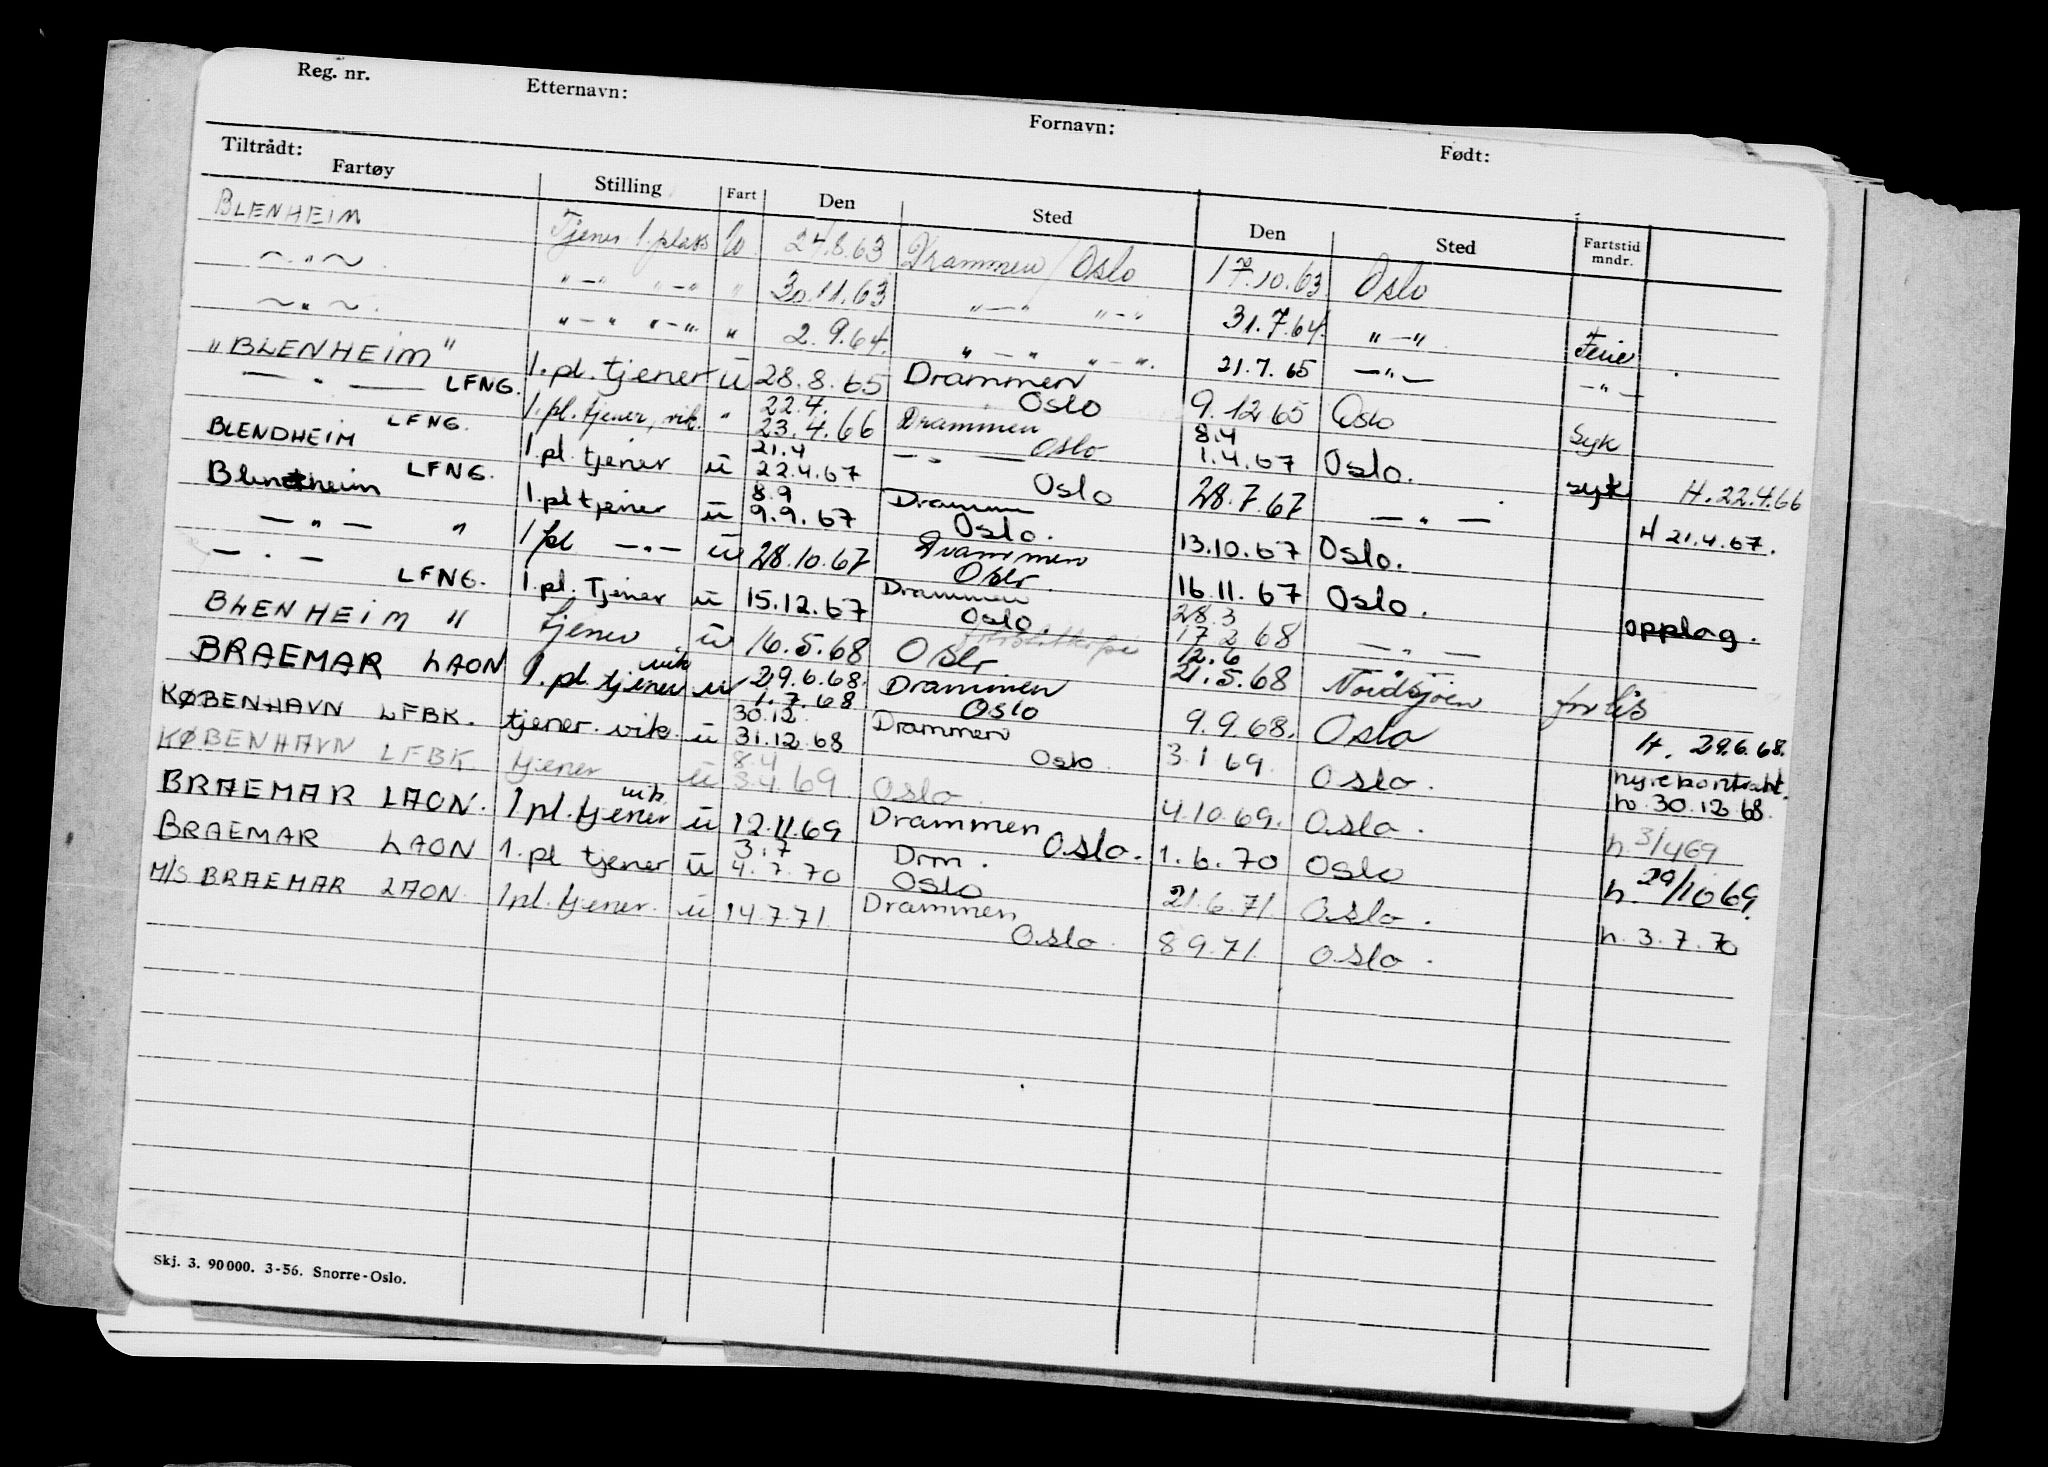 Reg. nr. Etternavn: Fornavn: Født:
Tiltrådt:
Fartøy Stilling Fart Den Sted Den Sted Fartstid mndr.
BLENHEIM Tjener 1. plass U 24.8.63 Drammen/Oslo 17.10.63 Oslo
~ " ~ " — " " — " " 30.11.63 " — " " — " 31.7.64. " — " Ferie
~ " ~ " — " " — " " 2.9.64. " — " " — " 21.7.65 — " — — " —
"BLENHEIM" LFNG. 1.pl. tjener u 28.8.65 Drammen Oslo 9.12 65 Oslo Syk
— " — LFNG. 1.pl. tjener, vik. " 22.4. 23.4.66 Drammen Oslo 8.4 1.4.67 Oslo. syk H. 22.4.66
BLENDHEIM LFNG. 1.pl. tjener u 21.4 22.4.67 — " — Oslo 28.7.67 — " — H 21.4.67.
Blenheim 1.pl tjener u 8.9 9.9.67 Drammen Oslo. 13.10.67 Oslo.
— " — " 1 pl — " — u 28.10.67 Drammen Oslo 16.11.67 Oslo. opplag.
— " — LFNG. 1.pl. Tjener u 15.12.67 Drammen Oslo. 28.3 17.2 68 — " —
BLENHEIM " tjener u 16.5.68 Oslo 12.6 21.5.68 Nordsjøen forlis
BRAEMAR LAON 1.pl. tjener vik u 29.6.68. 1.7.68 Drammen Oslo 9.9.68. Oslo H. 29.6.68.
KØBENHAVN LFBK. tjener. vik. u 30.12. 31.12.68 Drammen Oslo 3.1 69. Oslo. nyrekontrakt. h. 30.12.68.
KØBENHAVN LFBK tjener u 8.4 8.4.69 Oslo. 4.10.69. Oslo. h. 3/469
BRAEMAR LAON. 1 pl. tjener vik. u 12.11.69. Drammen Oslo. 1.6.70 Oslo h. 29/1069.
BRAEMAR LAON 1. pl tjener u 3.7 4.7.70 Drm. Oslo 21.6.71. Oslo. h. 3.7.70
M/S BRAEMAR LAON. 1pl. tjener. u 14.7.71. Drammen Oslo. 8 9.71. Oslo.
Skj. 3. 90000. 3-56. Snorre-Oslo.